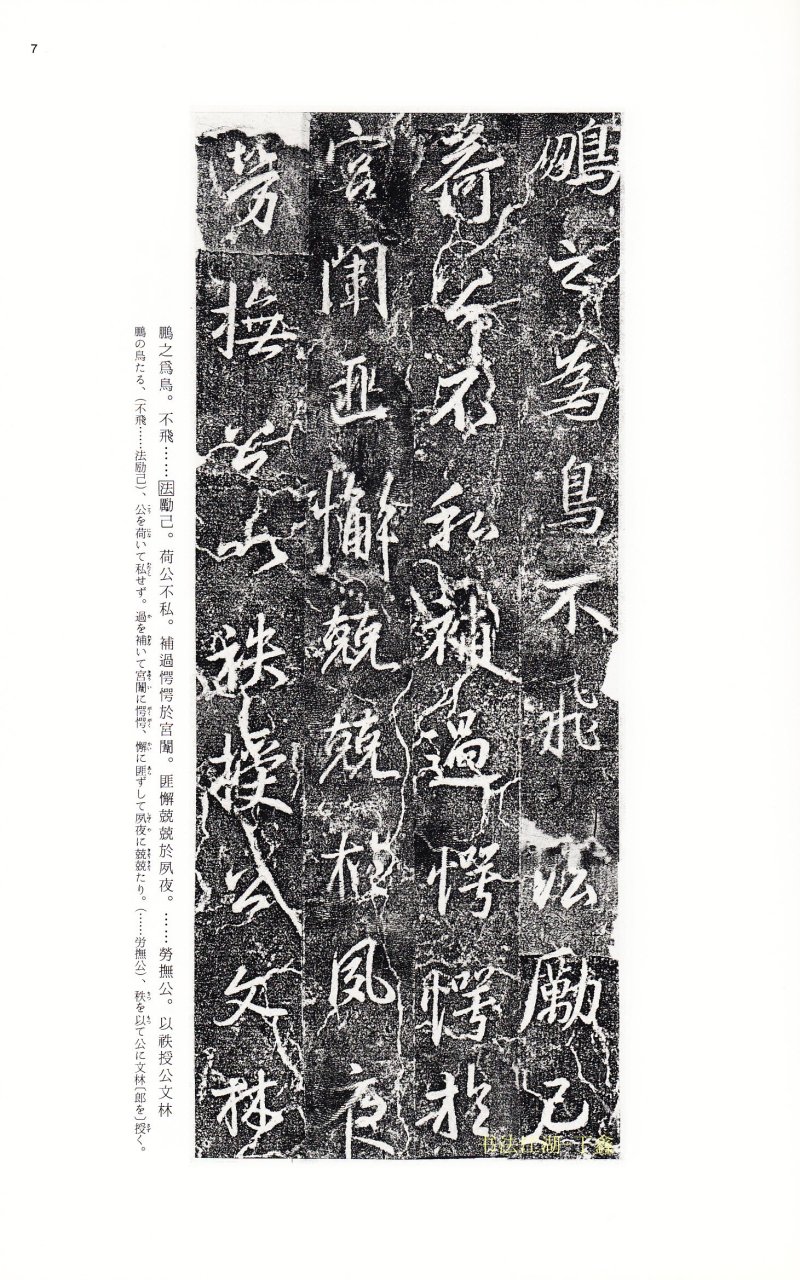 7
鵬之為鳥不飛法勵己
荷公不私補過愕愕於
宮闈匪懈兢兢於夙夜
勞撫公以秩授公文林
鵬之爲鳥。不飛……法勵己。荷公不私。補過愕愕於宮闈。匪懈兢兢於夙夜。……勞撫公。以祑授公文林
鵬の鳥たる、(不飛……法励己)、公を荷いて私せず。過を補いて宮闈に愕愕、懈に匪ずして夙夜に兢兢たり。(……労撫公)、秩を以て公に文林〔郎を〕授く。